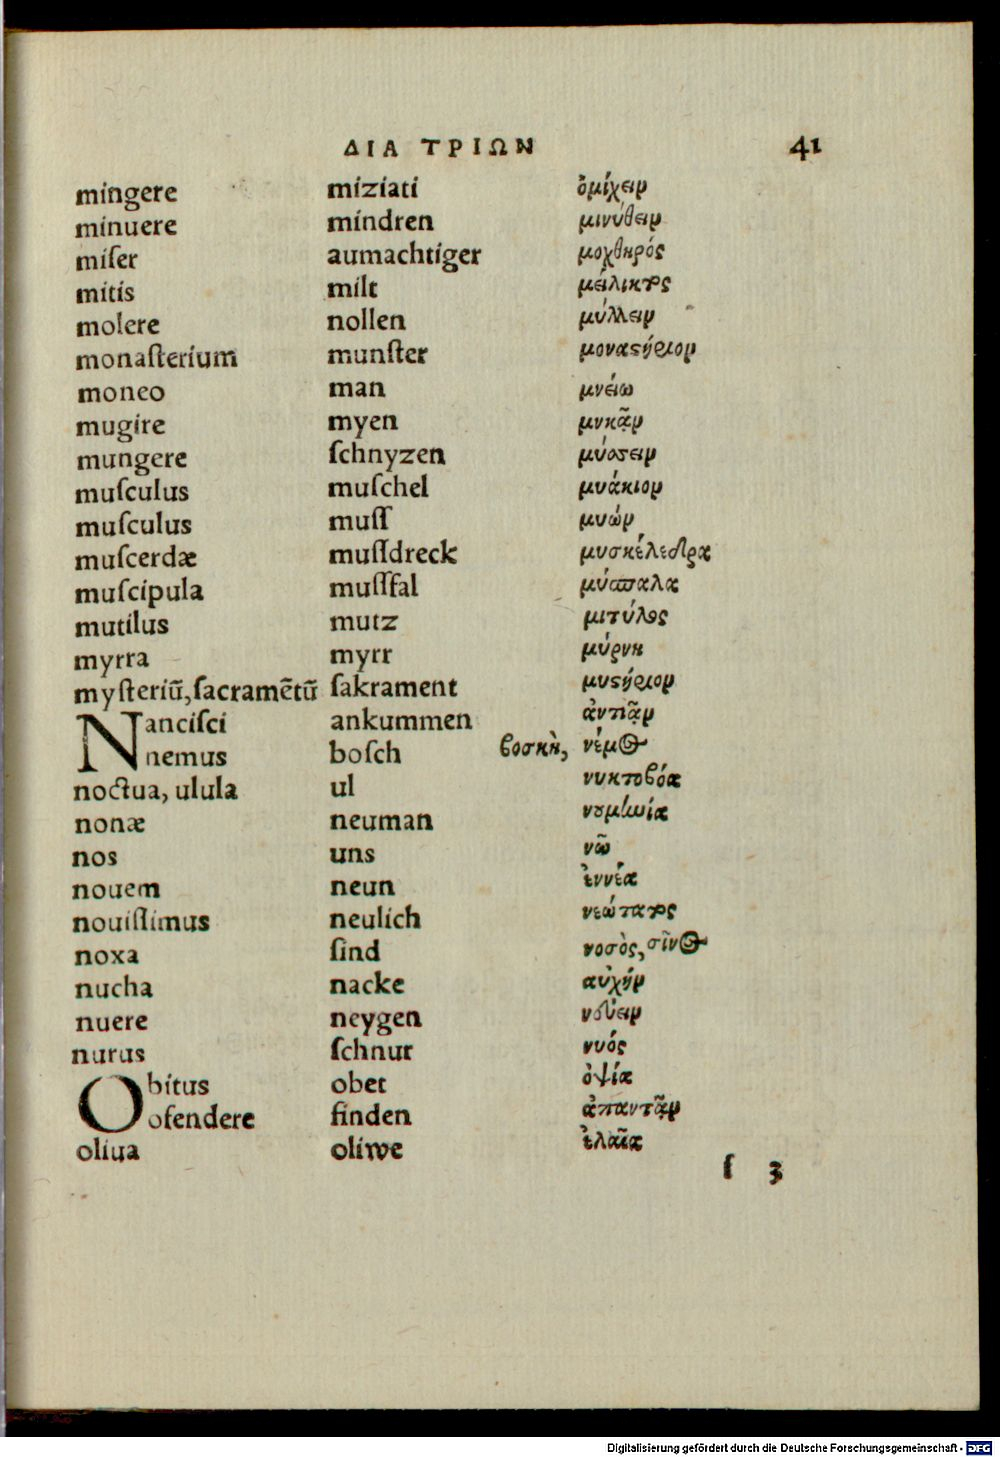 ΔΙΑ ΤΡΙΩΝ 41
mingere miziati ὀμίχειν
minuere mindren μινύθειν
miſer aumachtiger μοχθηρός
mitis milt μείλικτος
molere nollen μύλλειν
monaſterium munſter μοναστήριον
moneo man μνείω
mugire myen μυκᾷν
mungere ſchnyzen μύσσειν
muſculus muſchel μυάκιον
muſculus muſſ μυών
muſcerdæ muſſdreck μυσκέλεδρα
muſcipula muſſfal μύσπαλα
mutilus mutz μιτύλος
myrra myrr μύρνη
myſteriū, ſacramētū ſakrament μυστήριον
Nanciſci ankummen ἀντιᾷν
nemus boſch βοσκὴ, νέμος
noctua, ulula ul νυκτοβόα
nonæ neuman νουμηνία
nos uns νῶ
nouem neun ἐννέα
nouiſſimus neulich νεώτατος
noxa ſind νοσὸς, σῖνος
nucha nacke αὐχήν
nuere neygen νεύειν
nurus ſchnur νυός
Obitus obet ὀψία
ofendere finden ἀπαντᾷν
oliua oliwe ἐλαῖα
f 3
Digitalisierung gefördert durch die Deutsche Forschungsgemeinschaft - DFG